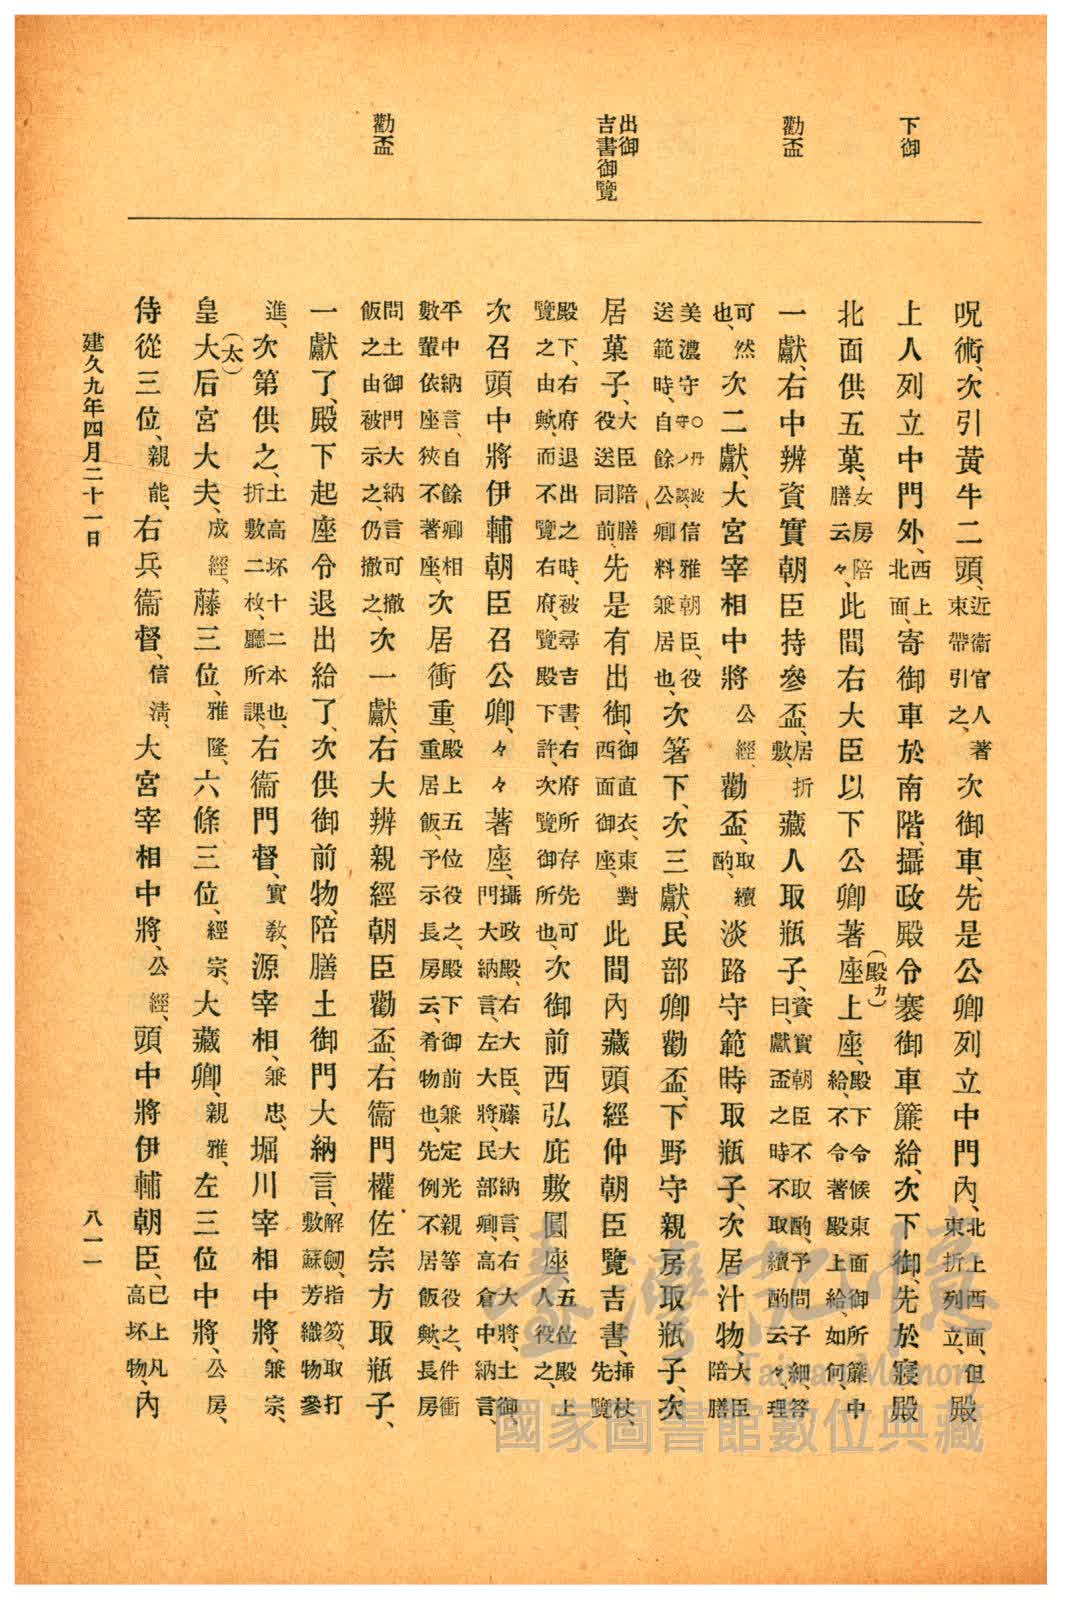 下御
勸盃
出御
吉書御覽
勸盃
呪術、次引黃牛二頭、近衞官人著束帶引之、次御車、先是公卿列立中門內、北上西面、但東折列立、殿
上人列立中門外、西上北面、寄御車於南階、攝政殿令褰御車簾給、次下御、先於寢殿
北面供五菓、女房陪膳云々、此間右大臣以下公卿著座(殿カ)上座、殿下令候東面御所簾中給、不令著殿上給、如何、
一獻、右中辨資實朝臣持參盃、居折敷、藏人取瓶子、資實朝臣不取酌、予問子細、答曰、獻盃之時不取續酌云々、理
可然也、次二獻、大宮宰相中將公經、勸盃、取續酌、淡路守範時取瓶子、次居汁物大臣陪膳
美濃守○丹波守ノ誤、信雅朝臣、役送範時、自餘公卿料兼居也、次箸下、次三獻、民部卿勸盃、下野守親房取瓶子、次
居菓子、大臣陪膳役送同前、先是有出御、御直衣、東對西面御座、此間內藏頭經仲朝臣覽吉書、挿杖、先覽
殿下、右府退出之時、被尋吉書、右府所存先可覽之由歟、而不覽右府、覽殿下許、次覽御所也、次御前西弘庇敷圓座、五位殿上人役之、
次召頭中將伊輔朝臣召公卿、々々著座、攝政殿、右大臣、藤大納言、右大將、土御門大納言、左大將、民部卿、高倉中納言、
平中納言、自餘卿相數輩依座狹不著座、次居衝重、殿上五位役之、殿下御前兼定光親等役之、件衝重居飯、予示長房云、肴物也、先例不居飯歟、長房
問土御門大納言可撤飯之由被示之、仍撤之、次一獻、右大辨親經朝臣勸盃、右衞門權佐宗方取瓶子、
一獻了、殿下起座令退出給了、次供御前物、陪膳土御門大納言、解劒、指笏、取打敷蘇芳織物參
進、次第供之、土高坏十二本也、折敷二枚、廳所課、右衞門督、實敎、源宰相、兼忠、堀川宰相中將、兼宗、
皇大(太)后宮大夫、成經、藤三位、雅隆、六條三位、經宗、大藏卿、親雅、左三位中將、公房、
侍從三位、親能、右兵衞督、信淸、大宮宰相中將、公經、頭中將伊輔朝臣、已上凡高坏物、內
建久九年四月二十一日
八一一
臺灣記憶
Taiwan Memory
國家圖書館數位典藏